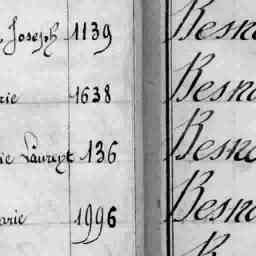 Joseph 1139
rie 1638
ie Laurent 136
arie 1996
Besn
Besn
Besn
Besn
B